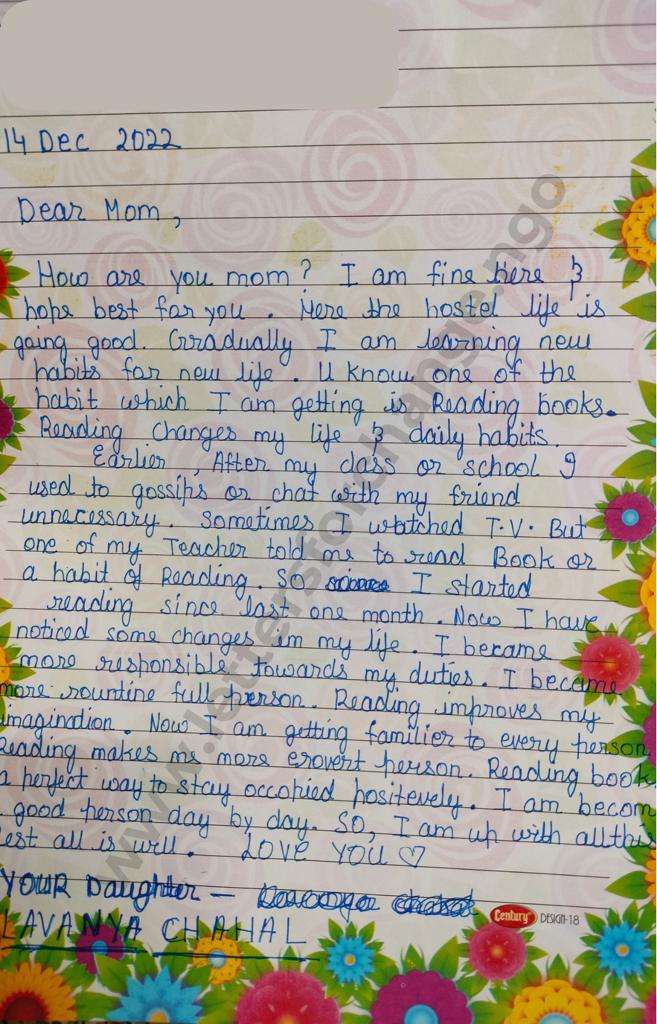 14 Dec 2022
Dear Mom,
How are you mom? I am fine here &
hope best for you. Here the hostel life is
going good. Gradually I am learning new
habits for new life. U know one of the
habit which I am getting is Reading books.
Reading changes my life & daily habits.
Earlier, After my class or school I
used to gossips or chat with my friend
unnecessary. Sometimes I watched T.V. But
one of my Teacher told me to read Book or
a habit of Reading. SO I started
reading since last one month. Now I have
noticed some changes in my life. I became
more responsible towards my duties. I became
more rountine full person. Reading improves my
imagination. Now I am getting familier to every person
Reading makes me more erovert person. Reading book
a perfect way to stay occopied positevely. I am becom
good person day by day. SO, I am up with all this
est all is well. LOVE YOU ♡
YOUR Daughter –
LAVANYA CHAHAL
Century DESIGN-18
www.lettersforchange.ngo